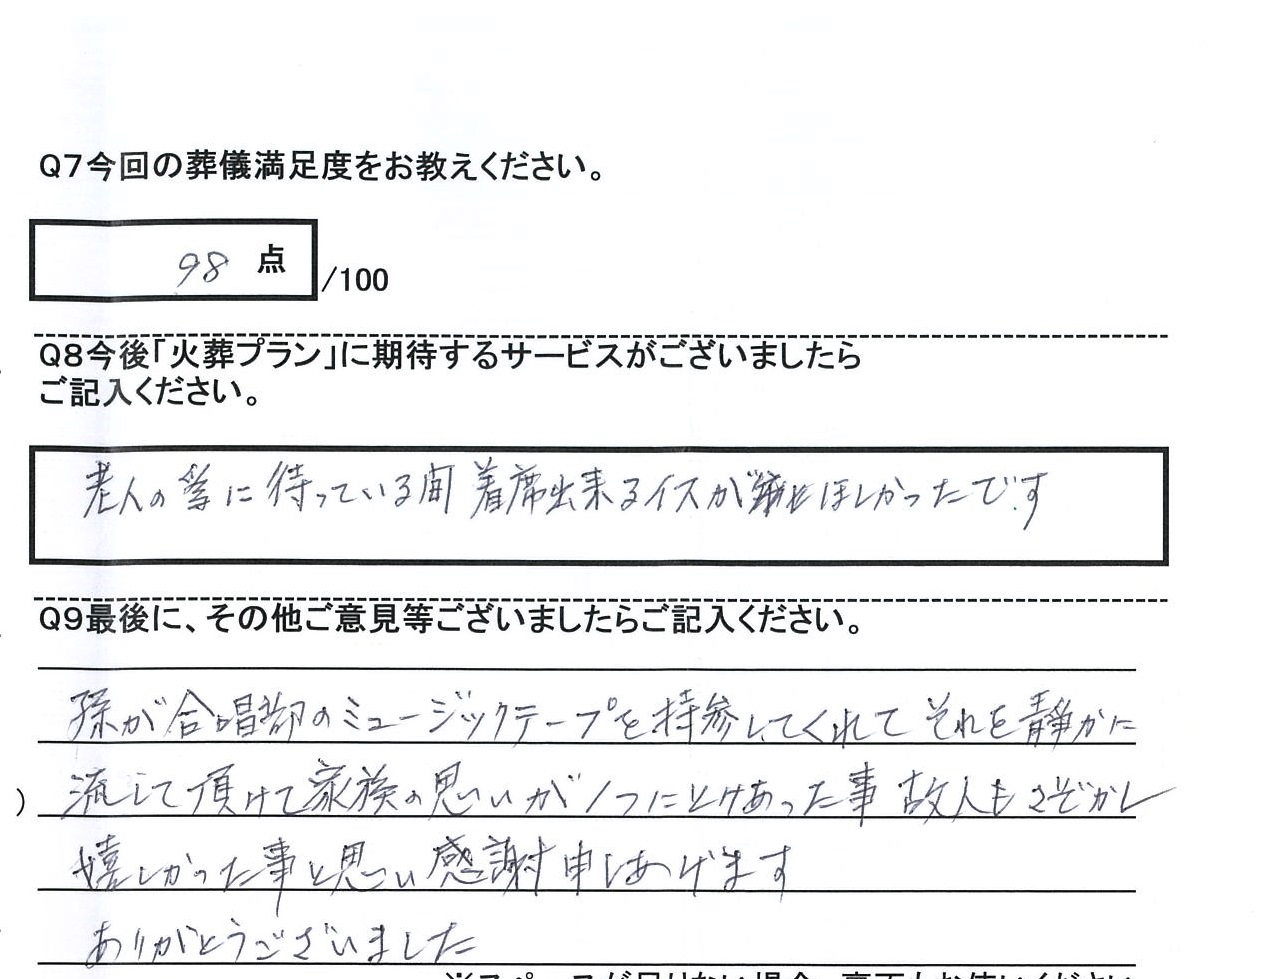 Q7今回の葬儀満足度をお教えください。
98 点 /100
Q8今後「火葬プラン」に期待するサービスがございましたら
ご記入ください。
老人の為に待っている間 着席出来るイスが ほしかったです
Q9最後に、その他ご意見等ございましたらご記入ください。
孫が合唱部のミュージックテープを持参してくれて それを静かに
流して頂けて家族の思いが1つにとけあった事 故人もさぞかし
嬉しかった事と思い感謝申しあげます
ありがとうございました